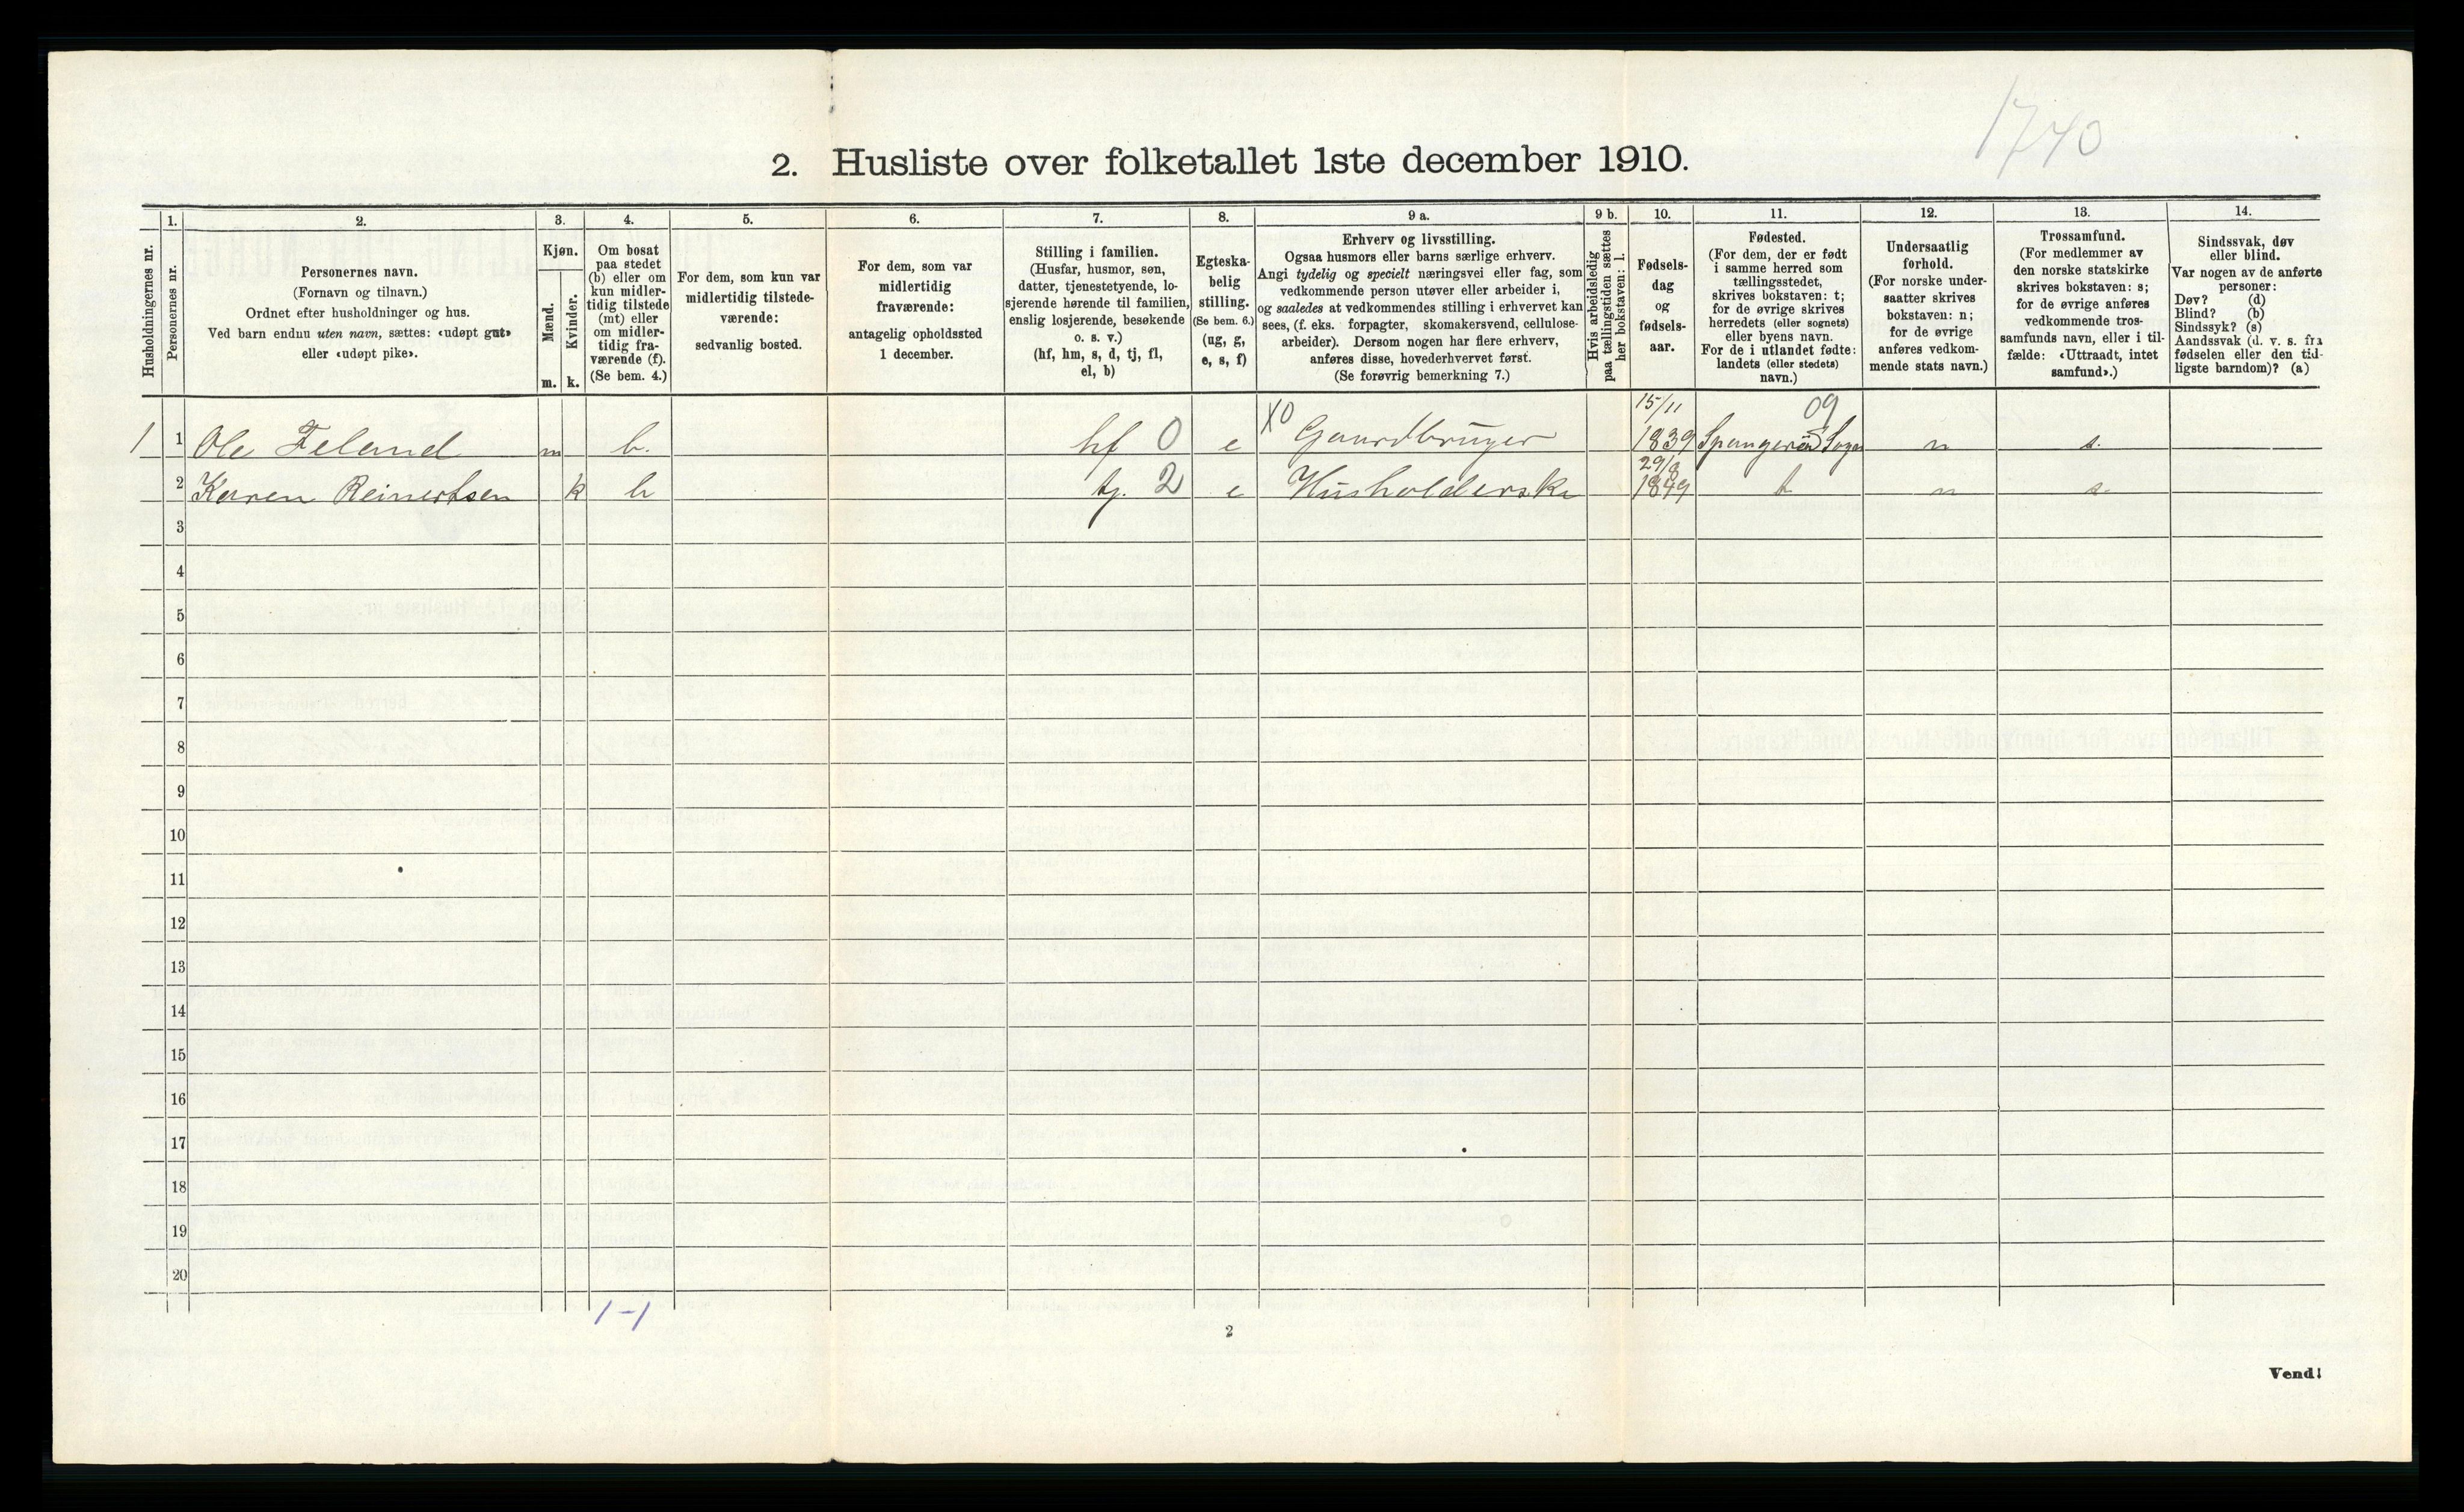 1740
2. Husliste over folketallet 1ste december 1910.
Husholdningernes nr.
1.
Personernes nr.
2.
Personernes navn.
(Fornavn og tilnavn.)
Ordnet efter husholdninger og hus.
Ved barn endnu uten navn, sættes: «udøpt gut»
eller «udøpt pike».
3.
Kjøn.
Mænd.
Kvinder.
m. k.
4.
Om bosat
paa stedet
(b) eller om
kun midler-
tidig tilstede
(mt) eller
om midler-
tidig fra-
værende (f).
(Se bem. 4.)
5.
For dem, som kun var
midlertidig tilstede-
værende:
sedvanlig bosted.
6.
For dem, som var
midlertidig
fraværende:
antagelig opholdssted
1 december.
7.
Stilling i familien.
(Husfar, husmor, søn,
datter, tjenestetyende, lo-
sjerende hørende til familien,
enslig losjerende, besøkende
o. s. v.)
(hf, hm, s, d, tj, fl,
el, b)
8.
Egteska-
belig
stilling.
(Se bem. 6.)
(ug, g,
e, s, f)
9 a.
Erhverv og livsstilling.
Ogsaa husmors eller barns særlige erhverv.
Angi tydelig og specielt næringsvei eller fag, som
vedkommende person utøver eller arbeider i,
og saaledes at vedkommendes stilling i erhvervet kan
sees, (f. eks. forpagter, skomakersvend, cellulose-
arbeider). Dersom nogen har flere erhverv,
anføres disse, hovederhvervet først.
(Se forøvrig bemerkning 7.)
9 b.
Hvis arbeidsledig
paa tællingstiden sættes
her bokstaven: l.
10.
Fødsels-
dag
og
fødsels-
aar.
11.
Fødested.
(For dem, der er født
i samme herred som
tællingsstedet,
skrives bokstaven: t;
for de øvrige skrives
herredets (eller sognets)
eller byens navn.
For de i utlandet fødte:
landets (eller stedets)
navn.)
12.
Undersaatlig
forhold.
(For norske under-
saatter skrives
bokstaven: n;
for de øvrige
anføres vedkom-
mende stats navn.)
13.
Trossamfund.
(For medlemmer av
den norske statskirke
skrives bokstaven: s;
for de øvrige anføres
vedkommende tros-
samfunds navn, eller i til-
fælde: «Uttraadt, intet
samfund».)
14.
Sindssvak, døv
eller blind.
Var nogen av de anførte
personer:
Døv? (d)
Blind? (b)
Sindssyk? (s)
Aandssvak (d. v. s. fra
fødselen eller den tid-
ligste barndom)? (a)
1 1 Ole Feland m b. hf 0 e X0 Gaardbruger 15/11 1839 09 Spangereid Sogn n s.
2 Karen Reinertsen k b tj. 2 e Husholderske 29/8 1849 t n s.
3
4
5
6
7
8
9
10
11
12
13
14
15
16
17
18
19
20
1-1
2
Vend!